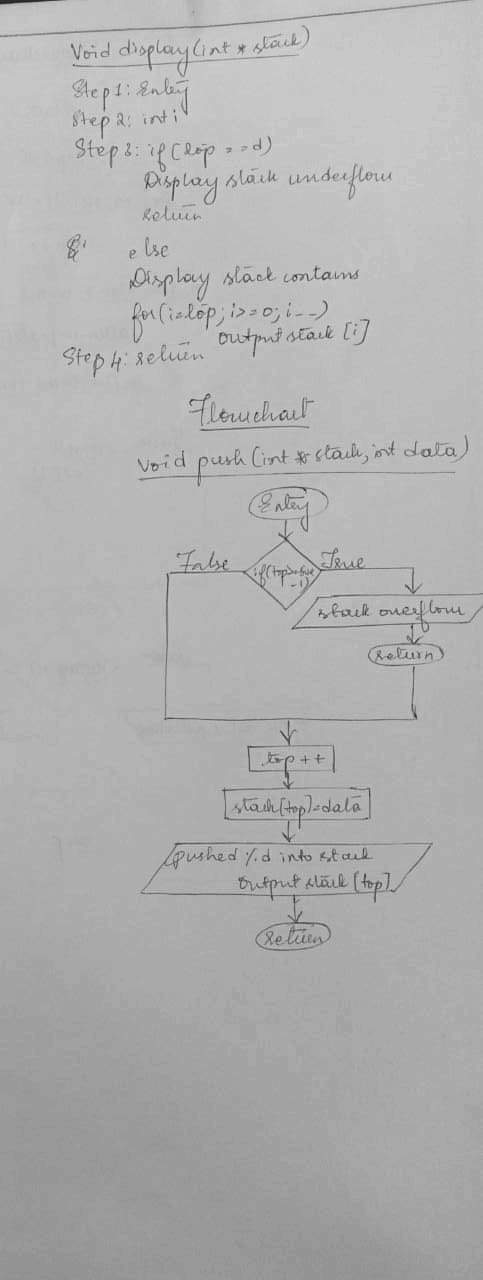 Void display(int * stack)
Step 1: Entry
Step 2: int i
Step 3: if (top = = d)
Display stack underflow
return
else
Display stack contains
for(i=top; i>=0; i--)
output stack [i]
Step 4: return
Flowchart
Void push (int * stack, int data)
Entry
False
True
stack overflow
return
top ++
stack[top]=data
pushed %d into stack
output stack [top]
return